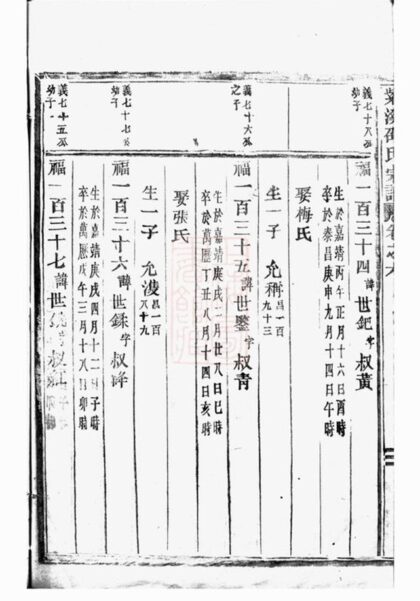 義七十八公
幼子
福一百三十四諱世鈀字叔黃
生於嘉靖丙午正月十六日酉時
卒於泰昌庚申九月十四日午時
娶梅氏
生一子 允稱昌一百
九十三
義七十六公
之子
福一百三十五諱世鏨字叔青
生於嘉靖庚戌二月廿八日巳時
卒於萬歷丁丑八月十四日亥時
娶張氏
生一子 允浚昌一百
八十九
義七十七公
幼子
福一百三十六諱世銇字叔
生於嘉靖庚戌四月十二日子時
卒於萬歷戊午三月十八日卯時
義七十五公
幼子
福一百三十七諱世